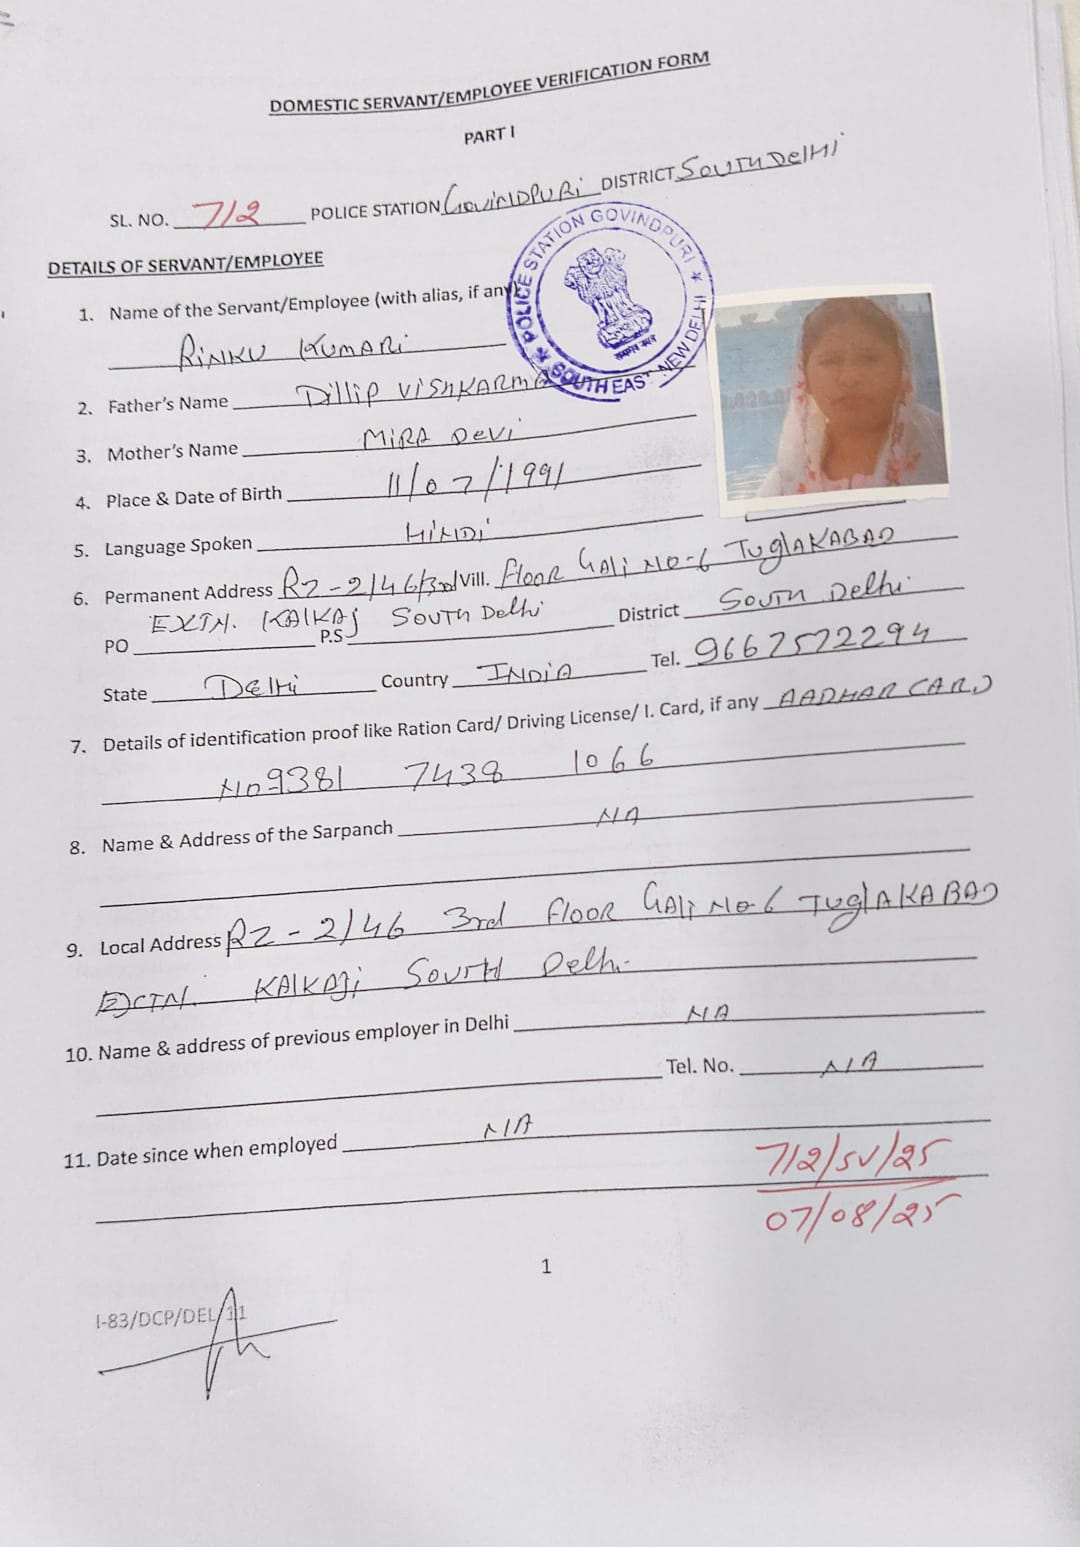 DOMESTIC SERVANT/EMPLOYEE VERIFICATION FORM
PART I
SL. NO. 712 POLICE STATION GOVINDPURi DISTRICT SOUTH DelHi
POLICE STATION GOVINDPURI
SOUTH EAST NEW DELHI
सत्यमेव जयते
DETAILS OF SERVANT/EMPLOYEE
1. Name of the Servant/Employee (with alias, if any)
RiNKU KUMARi
2. Father's Name Dillip VISHKARMA
3. Mother's Name MiRA Devi
4. Place & Date of Birth 11/07/1991
5. Language Spoken HiNDi
6. Permanent Address RZ-2/46/3rd Vill. Floor GAli NO-6 TuglAKABAD
PO EXTN. KAlKAj P.S SOUTH Delhi District SOUTH Delhi
State DElHi Country INDiA Tel. 9667572294
7. Details of identification proof like Ration Card/ Driving License/ I. Card, if any AADHAR CARD
NO-9381 7438 1066
8. Name & Address of the Sarpanch NA
9. Local Address RZ-2/46 3rd Floor GAli NO-6 TuglAKABAD
EXTN. KAlKAji SOUTH Delhi
10. Name & address of previous employer in Delhi NA
Tel. No. N/A
11. Date since when employed N/A
712/SV/25
07/08/25
1
I-83/DCP/DEL/11